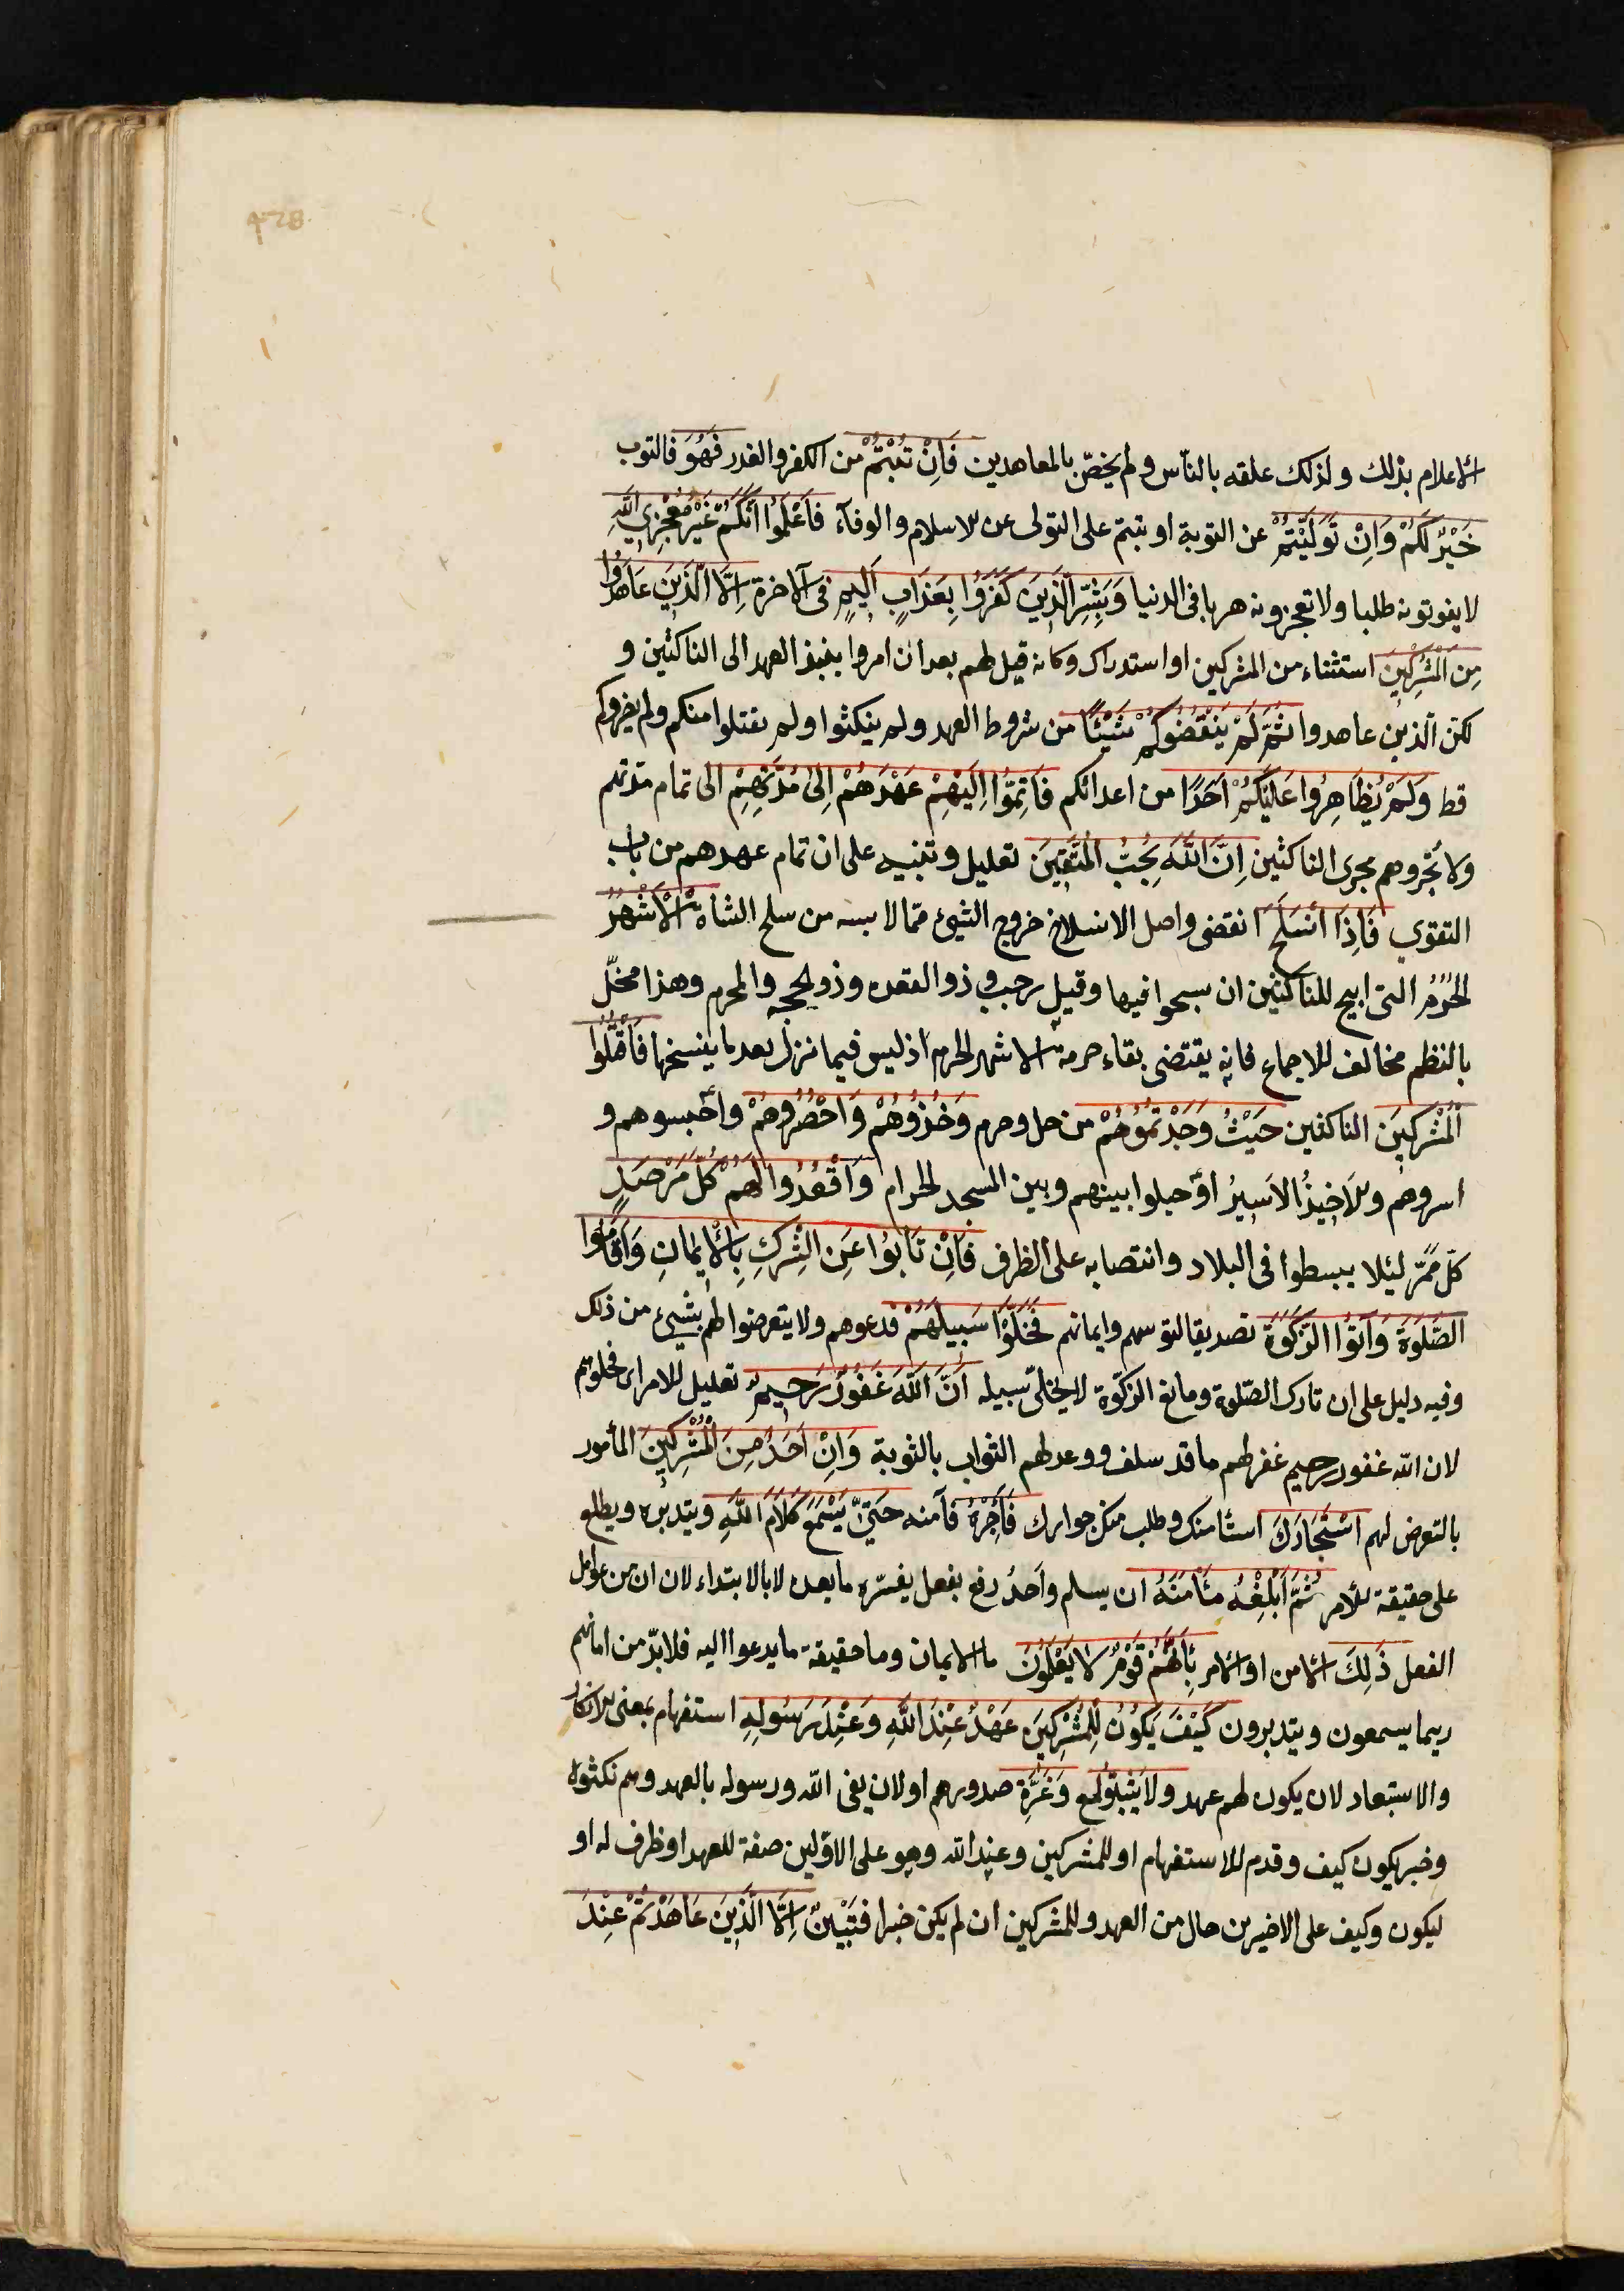 428
الاعلام بذلك ولذلك علقه بالناس ولم يخصّ بالمعاهدين فَاِنْ تُبْتُمْ من الكفر والغدر فَهُوَ فالتوب
خَيْرٌ لَكُمْ وَاِنْ تَوَلَّيْتُمْ عن التوبة او تبتم على التولى عن الاسلام والوفآء فَاعْلَمُوا اَنَّكُمْ غَيْرُ مُعْجِزِي اللّهِ
لا يفوتونه طلبا ولا تعجزونه هربا فى الدنيا وَبَشِّرِ الَّذِينَ كَفَرُوا بِعَذَابٍ اَلِيمٍ فى الآخرة اِلَّا الَّذِينَ عَاهَدُوا
مِنَ الْمُشْرِكِينَ استثناء من المشركين او استدراك وكانه قيل لهم بعد ان امروا بنبذ العهد الى الناكثين و
لكن الّذين عاهدوا ثُمَّ لَمْ يَنْقُضُوكُمْ شَيْئًا من شروط العهد ولم ينكثوا ولم يقتلوا منكم ولم يضروكم
قط وَلَمْ يُظَاهِرُوا عَلَيْكُمْ اَحَدًا من اعدائكم فَاَتِمُّوا اِلَيْهِمْ عَهْدَهُمْ اِلىٰ مُدَّتِهِمْ الى تمام مدتهم
ولا تُجروهم مجرى الناكثين اِنَّ اللّهَ يُحِبُّ الْمُتَّقِينَ تعليل وتنبيه على ان تمام عهدهم من باب
التقوي فَاِذَا انْسَلَخَ انقضى واصل الانسلاخ خروج الشيئ ممّا لابسه من سلخ الشاة الْاَشْهُرُ
الْحُرُمُ التى ابيح للناكثين ان يسيحوا فيها وقيل رجب و ذوالقعده وذو الحجه والمحرم وهذا مخلّ
بالنظم مخالف للاجماع فانه يقتضى بقاء حرمة الاشهر الحرم اذ ليس فيما نزل بعد ما ينسخها فَاقْتُلُوا
الْمُشْرِكِينَ الناكثين حَيْثُ وَجَدْتُمُوهُمْ من حل وحرم وَخُذُوهُمْ وَاحْصُرُوهُمْ واحبسوهم و
اسروهم والاَخِيذُ الاَسِيرُ او حيلوا بينهم وبين المسجد الحرام وَاقْعُدُوا لَهُمْ كُلَّ مَرْصَدٍ
كلّ ممَرّ لئيلا يبسطوا فى البلاد وانتصابه على الظرف فَاِنْ تَابُوا عَنِ الشِّرْكِ بِالْاِيمَانِ وَاَقَامُوا
الصَّلٰوةَ وَآتَوُا الزَّكٰوةَ تصديقا لتوبتهم وايمانهم فَخَلُّوا سَبِيلَهُمْ فدعوهم ولا يتعرضوا لهم بشيئ من ذلك
وفيه دليل على ان تارك الصّلوة ومانع الزكوٰة لا يخلىّ سبيله اِنَّ اللّهَ غَفُورٌ رَحِيمٌ تعليل للامر اى فخلوهم
لان اللّه غفور رحيم غفر لهم ما قد سلف ووعد لهم الثواب بالتوبة وَاِنْ اَحَدٌ مِنَ الْمُشْرِكِينَ المأمور
بالتعرض لهم اسْتَجَارَكَ استأمنك وطلب منك جوارك فَاَجِرْهُ فآمنه حَتىّٰ يَسْمَعَ كَلَامَ اللّهِ ويتدبره ويطلع
على حقيقة الامر ثُمَّ اَبْلِغْهُ مَأْمَنَهُ ان يسلم واحدٌ رفع بفعل يفسّره ما بعده لا بالابتداء لان ان من عوامل
الفعل ذَلِكَ الامن او الامر بِاَنَّهُمْ قَوْمٌ لَا يَعْلَمُونَ ما الايمان وما حقيقة ما يدعوا اليه فلا بدّ من امانهم
ريما يسمعون ويتدبرون كَيْفَ يَكُونُ لِلْمُشْرِكِينَ عَهْدٌ عِنْدَ اللّهِ وَعِنْدَ رَسُولِهِ استفهام بمعنى الانكار
والاستبعاد لان يكون لهم عهد ولا وَغَرَّةِ صدورهم او لان يفى اللّه ورسوله بالعهد وهم نكثوه
وخبر يكون كيف وقدم للاستفهام او للمشركين وعند اللّه وهو على الاوّلين صفة للعهد او ظرف له او
ليكون وكيف على الاخيرين حال من العهد وللمشركين ان لم يكن خبرا فتبيين اِلَّا الَّذِينَ عَاهَدْتُمْ عِنْدَ